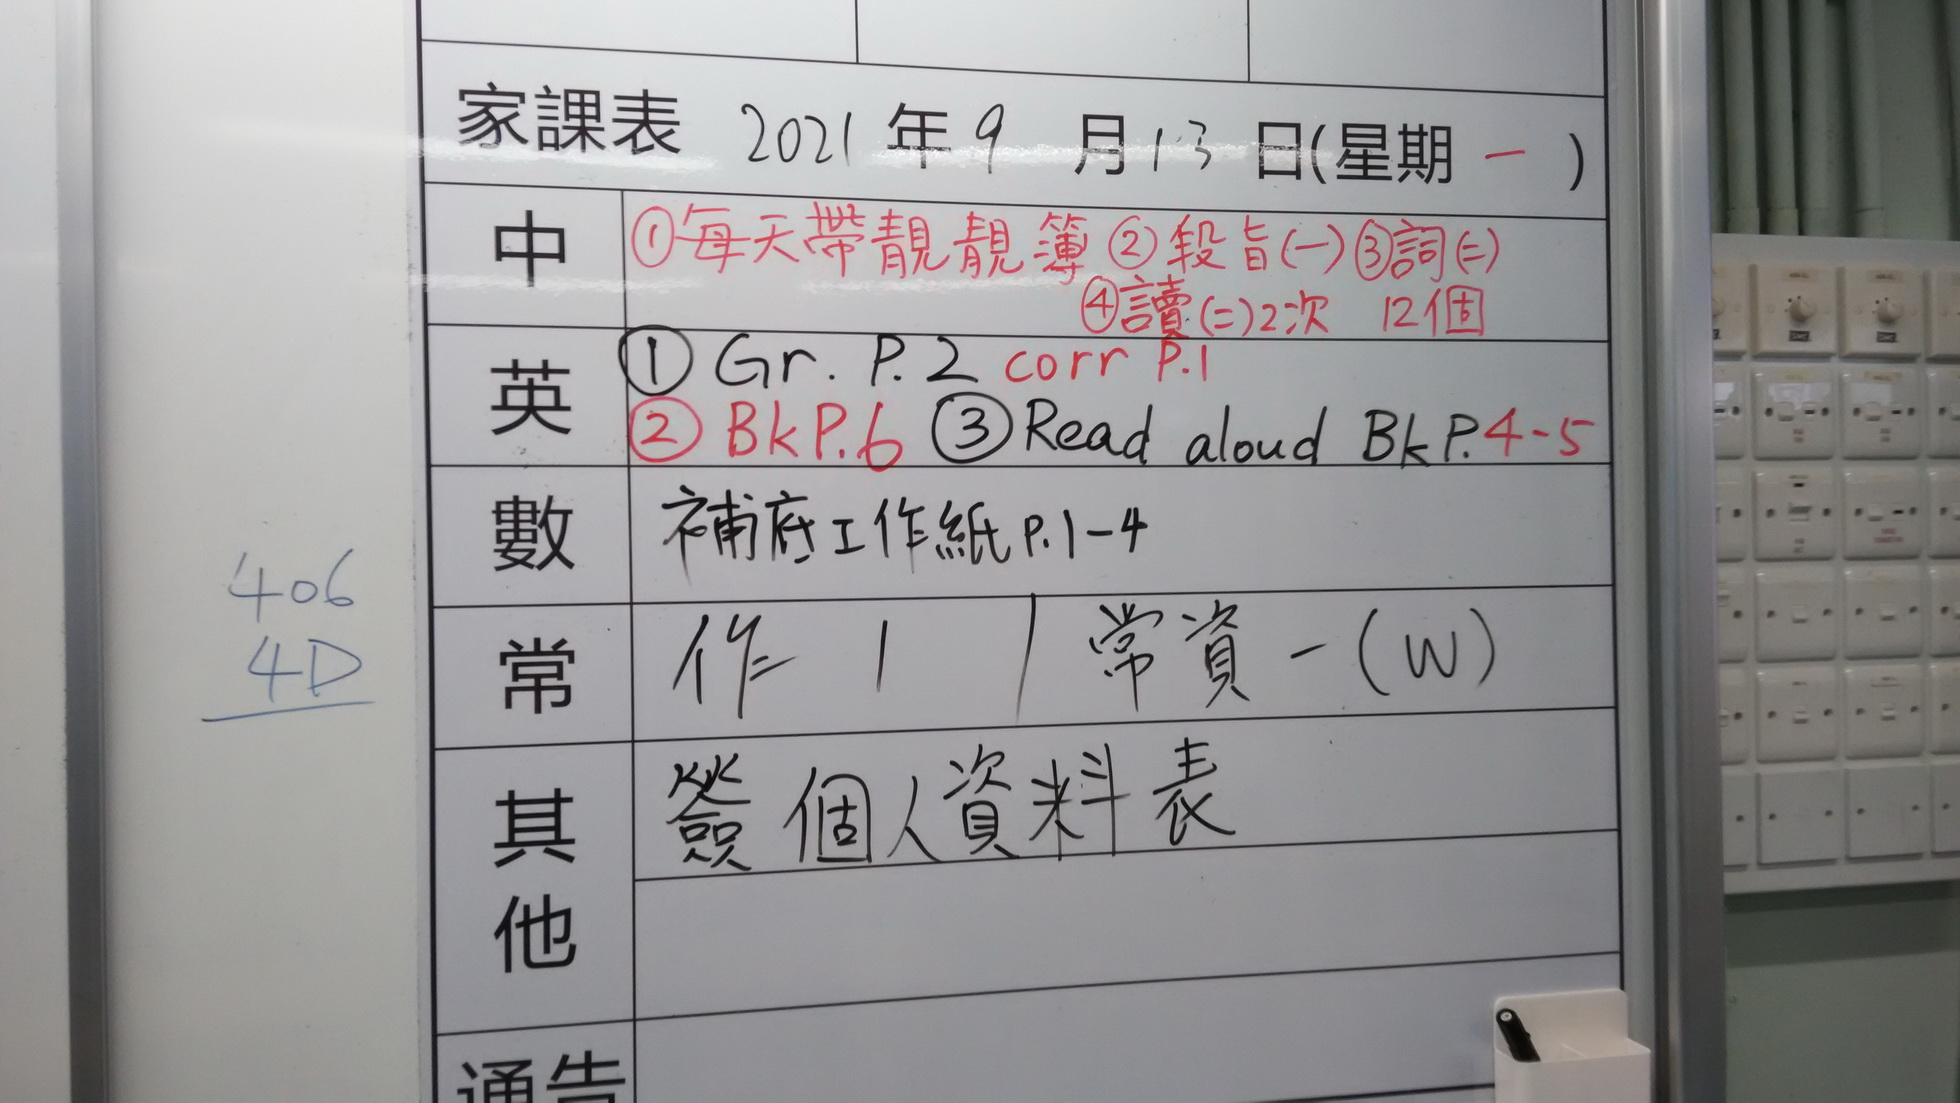 家課表 2021 年 9 月 13 日(星期 一 )
中
①每天帶靚靚簿 ②段旨(一) ③詞(二)
④讀(二)2次 12個
英
① Gr. P.2 corr P.1
② Bk P.6 ③ Read aloud Bk P.4-5
數
補底工作紙 P.1-4
常
作 1 / 常資一(W)
其他
簽個人資料表
通告
406
4D